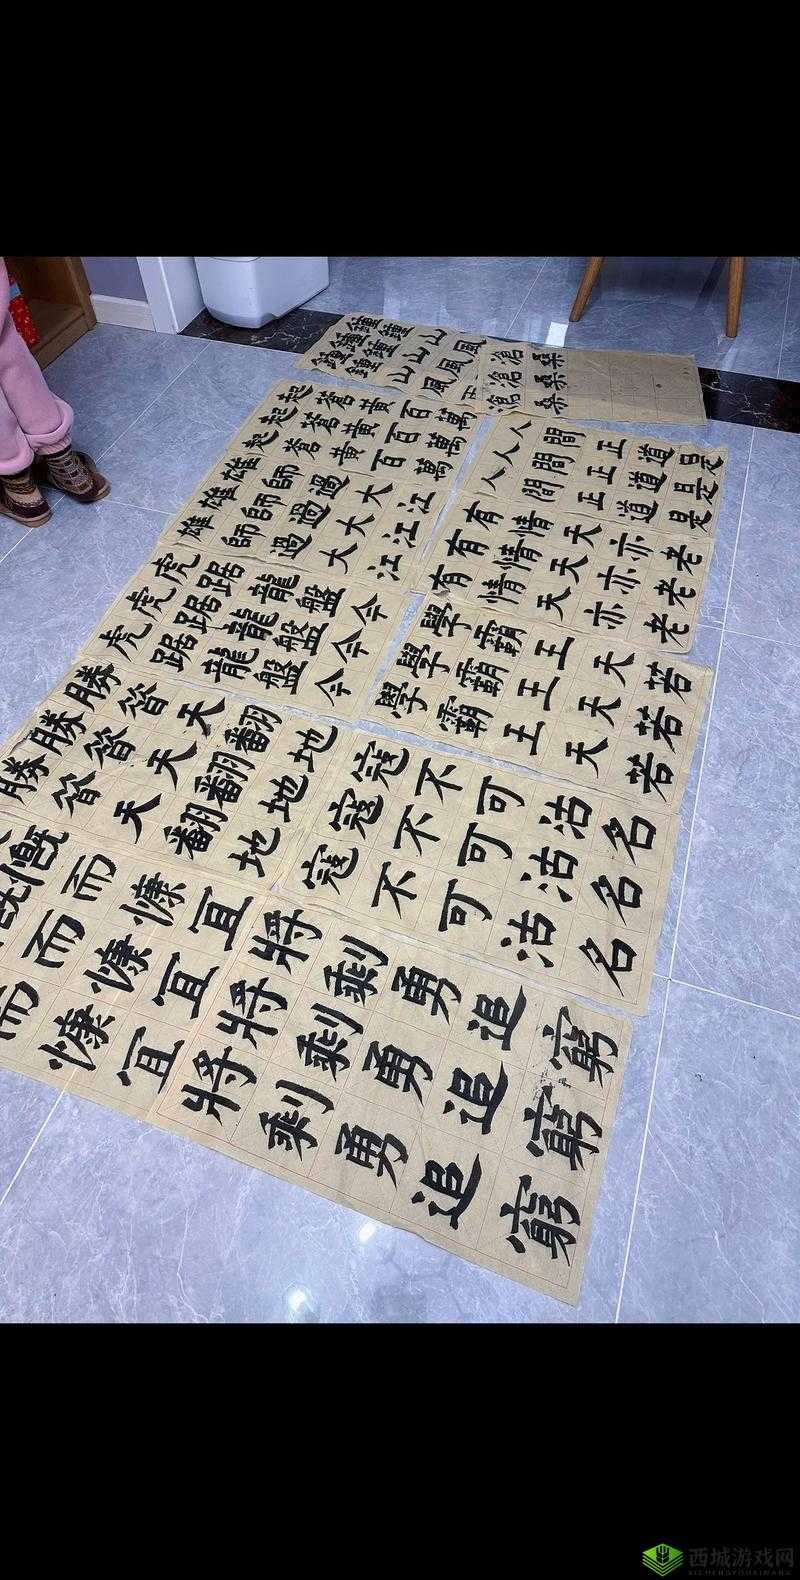 鐘鐘山風
鐘鐘山風
鐘鐘山風
滄桑
滄桑
滄桑
起蒼黃百萬
起蒼黃百萬
起蒼黃百萬
人間正道是
人間正道是
人間正道是
雄師過大江
雄師過大江
雄師過大江
有情天亦老
有情天亦老
有情天亦老
虎踞龍盤今
虎踞龍盤今
虎踞龍盤今
學霸王天若
學霸王天若
學霸王天若
勝天翻地
勝天翻地
勝天翻地
寇不可沽名
寇不可沽名
寇不可沽名
慨而慷宜
慨而慷宜
而慷宜
將剩勇追窮
將剩勇追窮
將剩勇追窮
西城游戏网
XICHENGYOUXIWANG